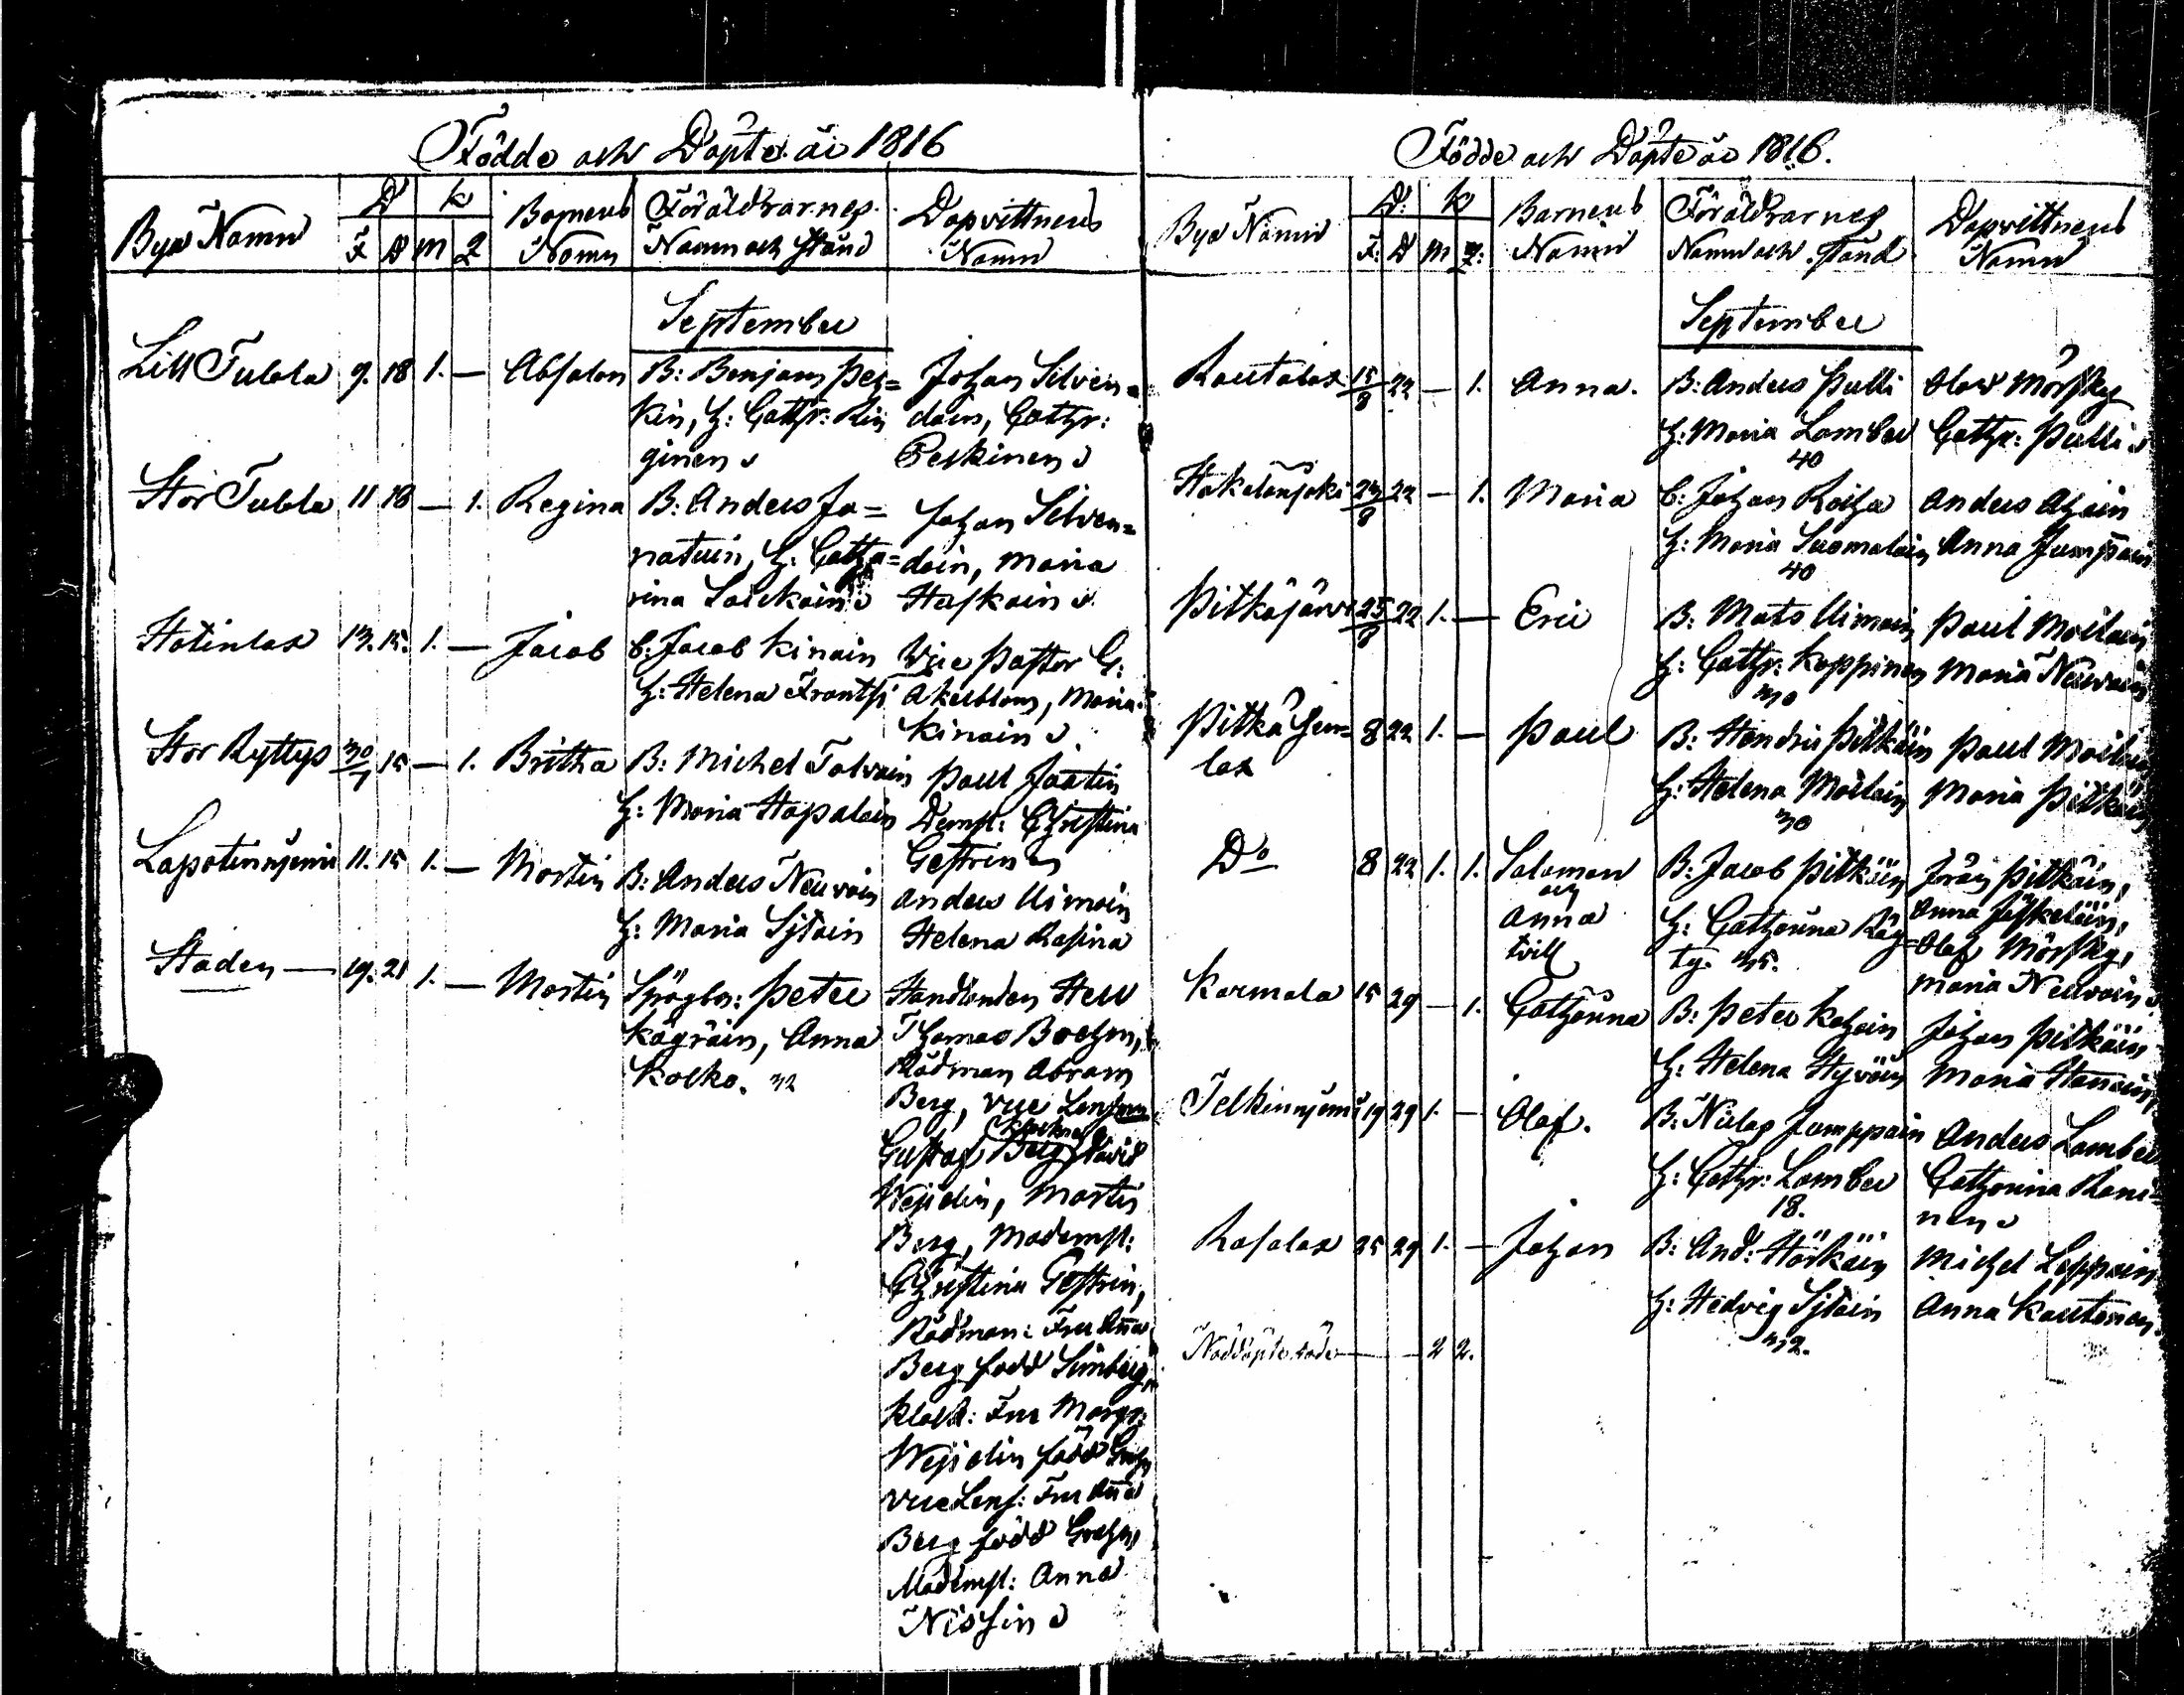 Födde och Döpte år 1816
Bya Namn
D
K
F D M Q
Barnens
Namn
Föräldrarnes
Namn och stånd
Dopvittnens
Namn
September
Lill Tubla 9. 18 1. — Absalon B: Benjam Pes=
kin, H: Cathr: Rin
ginen
Johan Silven=
doin, Cathr:
Peskinen
Stor Tubla 11 18 — 1. Regina B: Anders Ja=
natuin, H: Catha=
rina
Johan Silven=
doin, Maria
Haskain
Hotinlax 13. 15. 1. — Jacob B: Jacob Kinain
H: Helena Frantsi
Vice Pastor G:
Akelblom, Maria
Kinain
Stor Ryttys 30/7 15 — 1. Britha B: Michel Talvain
H: Maria Hapalain
Paul Jaatin
Demsl: Christina
Gestrin
Lapotinnjemi 11. 15 1. — Mortin B: Anders Neuvoin
H: Maria Sjtoin
Anders Uimoin
Helena Rasina
Staden — 19. 21 1. — Mortin Spögbr: Peter
Kägräin, Anna
Kolko. 32
Handlanden Herr
Thomas Boehm,
Rådman Abram
Berg, vice Lensm
Klockar
Gustaf Berg, David
Wejdelin, Mortin
Berg, Mademsl:
Christina Gestrin,
Rådman: Fru Anna
Berg född Simberg,
Klock: Fru Margr:
Wejdelin född
vice Lens: Fru Anna
Berg född
Mademsl: Anna
Nissin
Födde och Döpte år 1816.
Bya Namn
D:
K
F: D M Q:
Barnens
Namn
Föräldrarnes
Namn och stånd
Dopvittnens
Namn
September
Rautalax 15/8 22 — 1. Anna. B: Anders Pulli
H: Maria Lomber
40
Olof Mörsky
Cathr: Pulli
Hakalanjoki 24/8 22 — 1. Maria B: Johan Roiha
H: Maria Suomalain
40
Anders Ahoin
Anna Jumpain
Pitkäjärvi 25/8 22 1. — Eric B: Mats Uimoin
H: Cathr: Koppinen
30
Paul Moilain
Maria Neuvoin
Pitkä Jem=
lax
8 22 1. — Paul B: Hendric Pitkäin
H: Helena Moilain
30
Paul Moilain
Maria Pitkäin
Do 8 22 1. 1. Salomon
och
Anna
tvill
B: Jacob Pitkäin
H: Catharina Räy=
ty. 35.
Jöran Pitkäin,
Anna Jäskeläin,
Olof Mörsky,
Maria Neuvoin
Kormala 15 29 — 1. Catharina B: Peter Kohoin
H: Helena Hyvöin
Johan Pitkäin
Maria
Telkinnjemi 19 29 1. — Olof. B: Niclas Jumppain
H: Cathr: Lomber
18.
Anders Lomber
Catharina Roni=
nen
Rasalax 25 29 1. — Johan B: And: Hörkäin
H: Hedvig Sjtoin
32.
Michel Leppain
Anna Kautonen.
Nöddöpte döde — — 2 2.